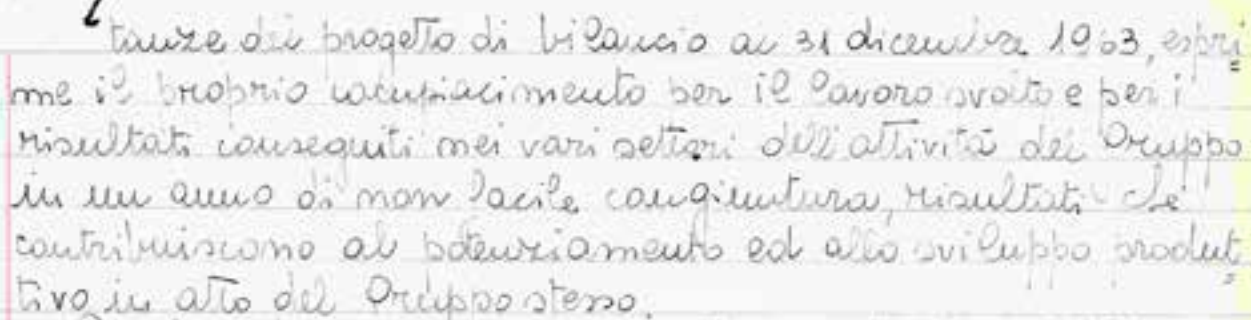 tanze del progetto di bilancio al 31 dicembre 1963, espri=
me il proprio compiacimento per il lavoro svolto e per i
risultati conseguiti nei vari settori dell'attività del Gruppo
in un anno di non facile congiuntura, risultati che
contribuiscono al potenziamento ed allo sviluppo produt=
tivo in atto del Gruppo stesso.